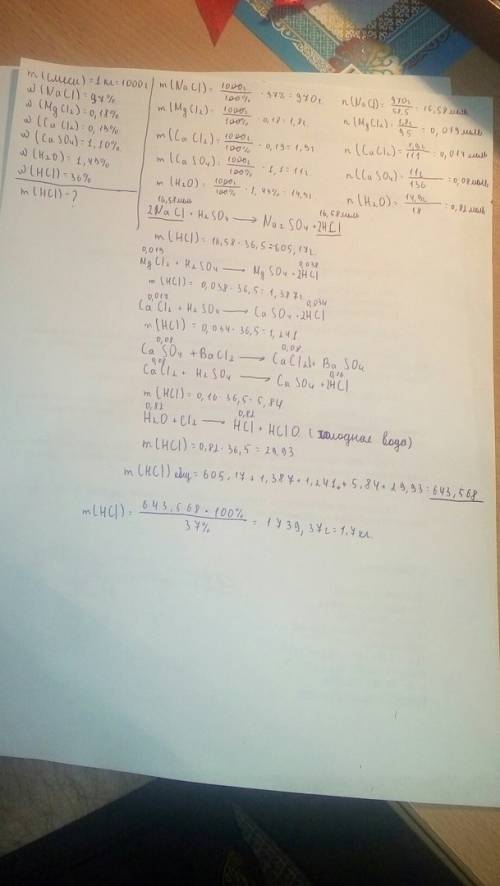 m(смеси)=1кг=1000г
ω(NaCl)=97%
ω(MgCl₂)=0,18%
ω(CaCl₂)=0,19%
ω(CaSO₄)=1,10%
ω(H₂O)=1,49%
ω(HCl)=36%
m(HCl)-?
m(NaCl)=1000г/100% · 97%=970г
m(MgCl₂)=1000г/100% · 0,18=1,8г
m(CaCl₂)=1000г/100% · 0,19=1,9г
m(CaSO₄)=1000г/100% · 1,1=11г
m(H₂O)=1000г/100% · 1,49%=14,9г
n(NaCl)=970г/58,5=16,58моль
n(MgCl₂)=1,8г/95=0,019моль
n(CaCl₂)=1,9г/111=0,017моль
n(CaSO₄)=11г/136=0,08моль
n(H₂O)=14,9г/18=0,82моль
16,58моль 16,58моль
2NaCl+H₂SO₄ → Na₂SO₄+2HCl
m(HCl)=16,58·36,5=605,17г
0,019 0,038
MgCl₂+H₂SO₄ → MgSO₄+2HCl
m(HCl)=0,038·36,5=1,387г
0,017 0,034
CaCl₂+H₂SO₄ → CaSO₄+2HCl
m(HCl)=0,034·36,5=1,241
0,08 0,08
CaSO₄+BaCl₂ → CaCl₂+BaSO₄
0,08 0,16
CaCl₂+H₂SO₄ → CaSO₄+2HCl
m(HCl)=0,16·36,5=5,84
0,82 0,82
H₂O+Cl₂ → HCl+HClO (холодная вода)
m(HCl)=0,82·36,5=29,93
m(HCl)общ=605,17+1,387+1,241+5,84+29,93=643,568
m(HCl)=643,568·100%/37%=1739,37г=1,7кг